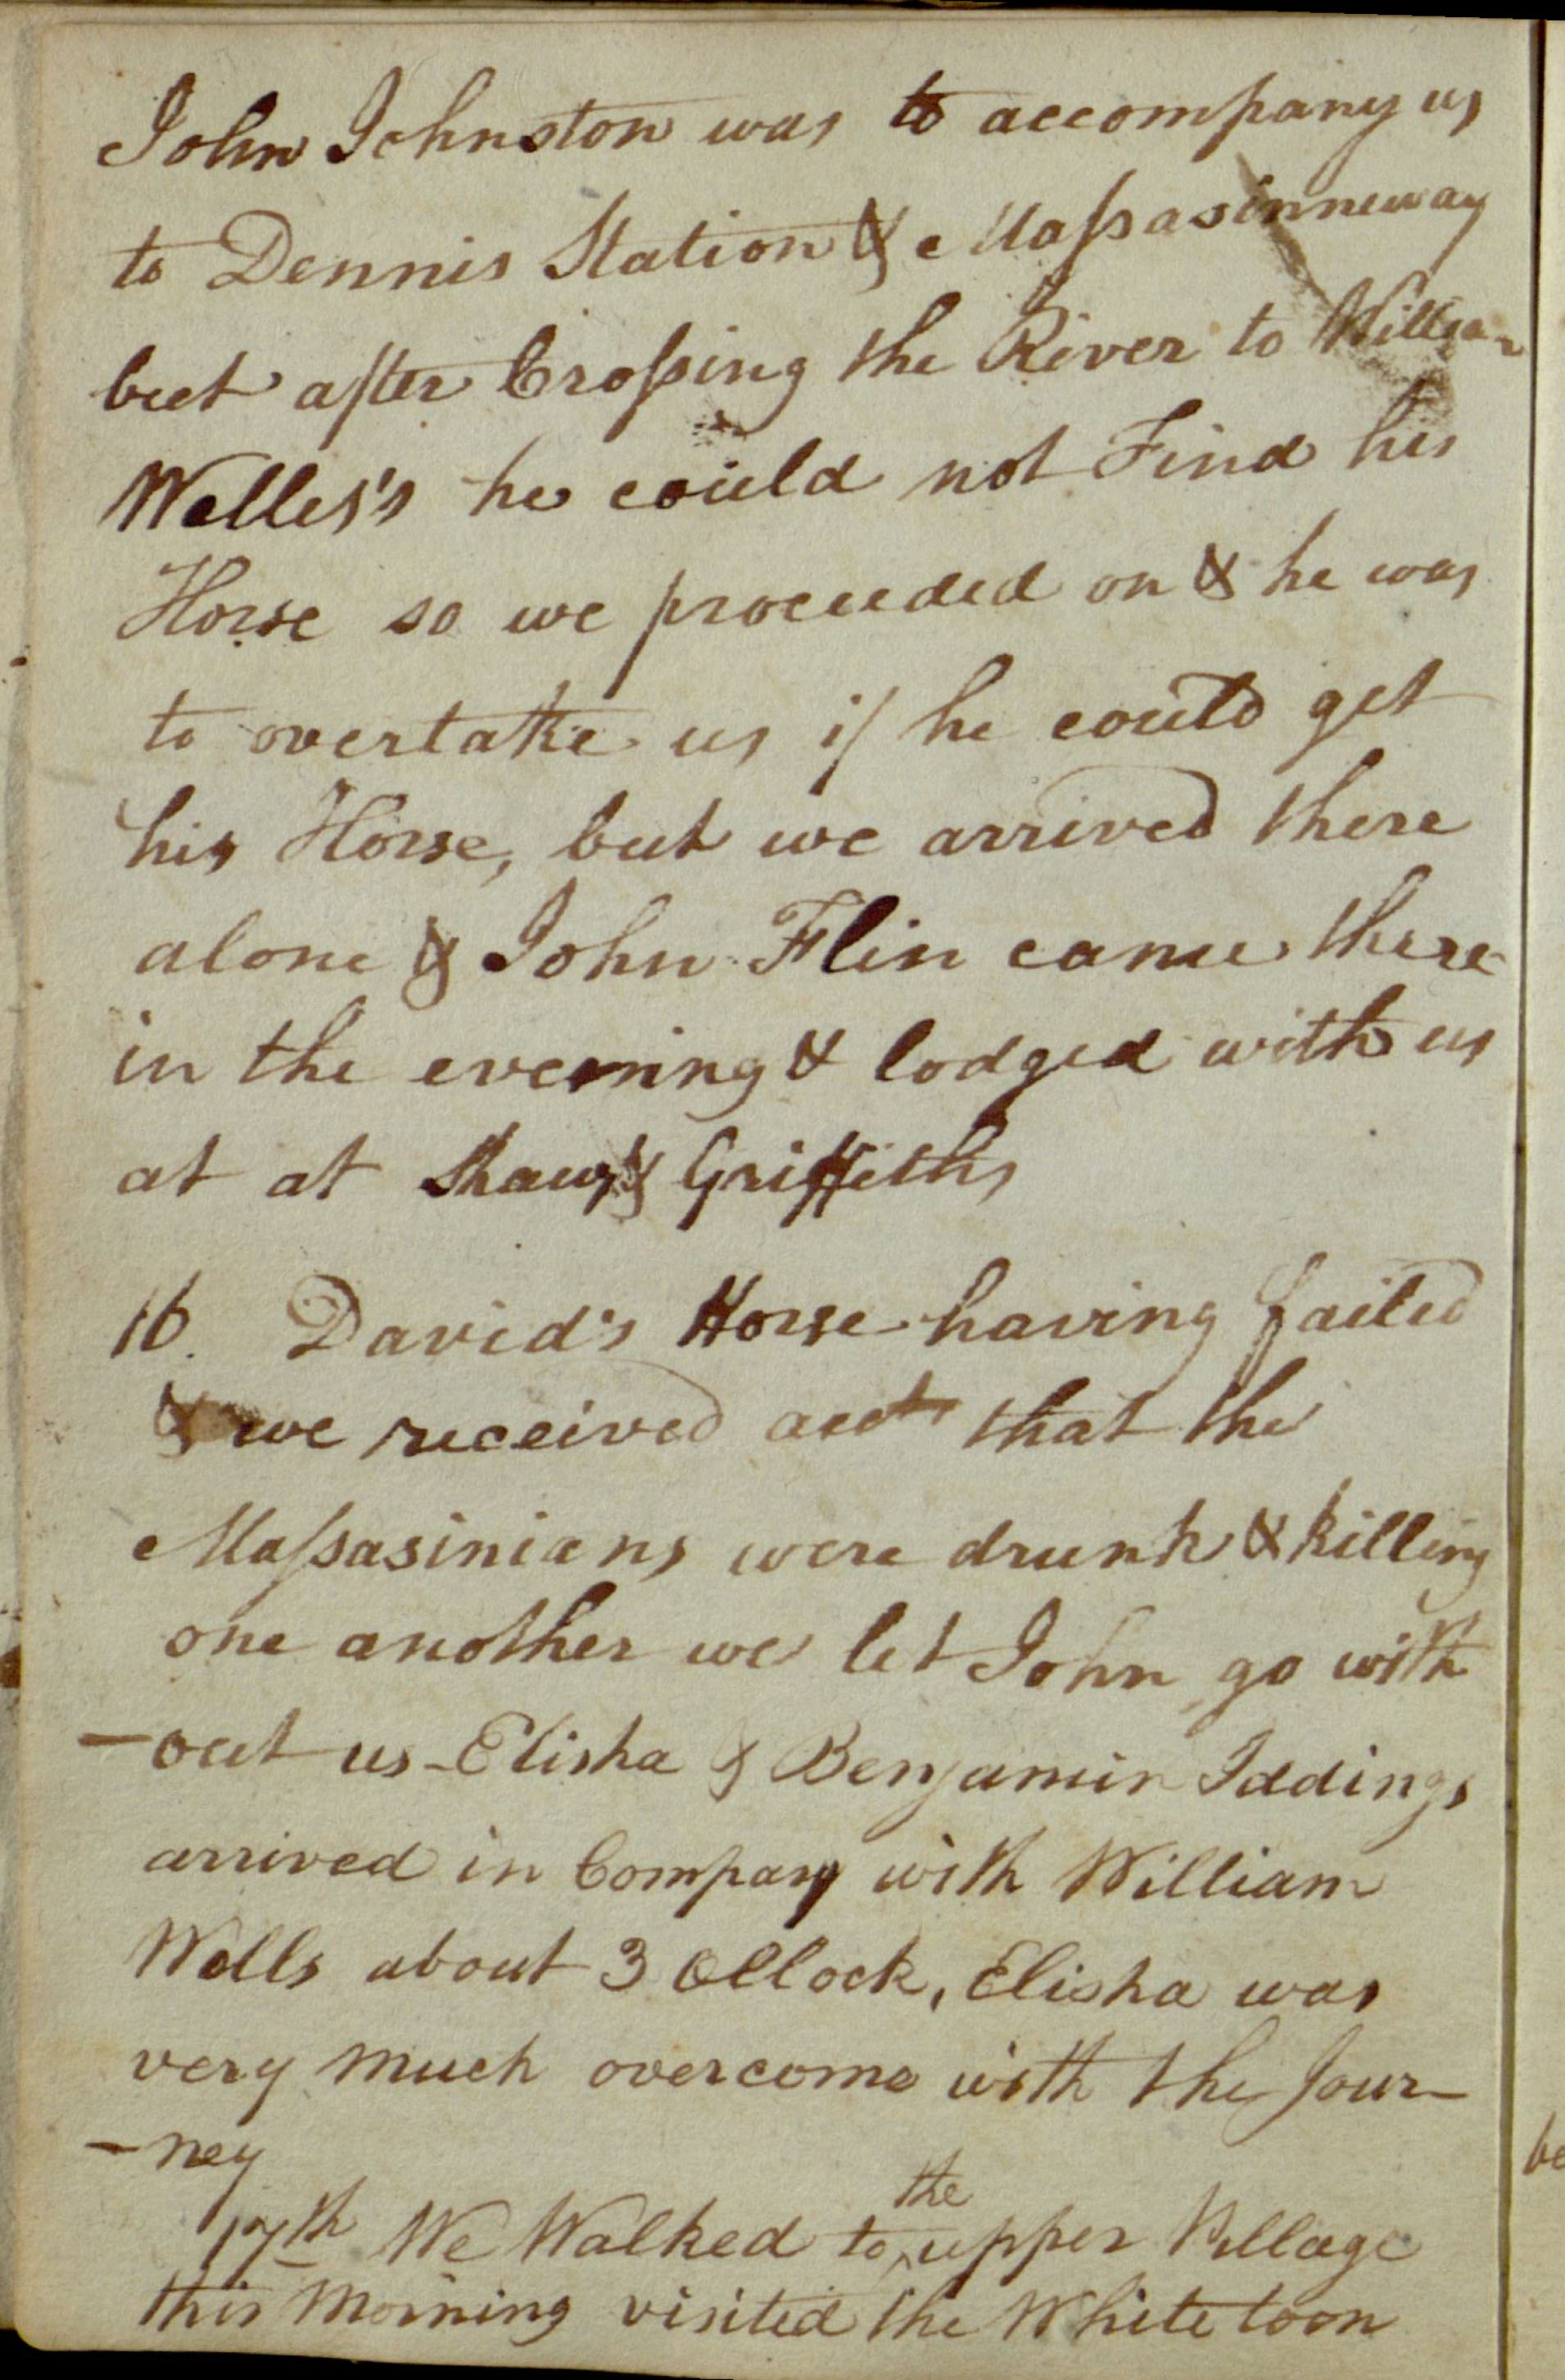 John Johnston was to accompany us
to Dennis Station & Massasinneway
but after Crossing the River to William
Welles's he could not Find his
Horse so we proceeded on & he was
to overtake us if he could get
his Horse, but we arrived there
alone & John Flin came there
in the evening & lodged with us
at at Shaws & Griffiths
16. David's Horse having failed
& we received acct that the
Massasinians were drunk & killing
one another we let John go with
-out us - Elisha & Benjamin Iddings
arrived in Company with William
Wells about 3 OClock, Elisha was
very much overcome with the Jour-
-ney
17th We Walked to the upper Village
this Morning visited the White loon